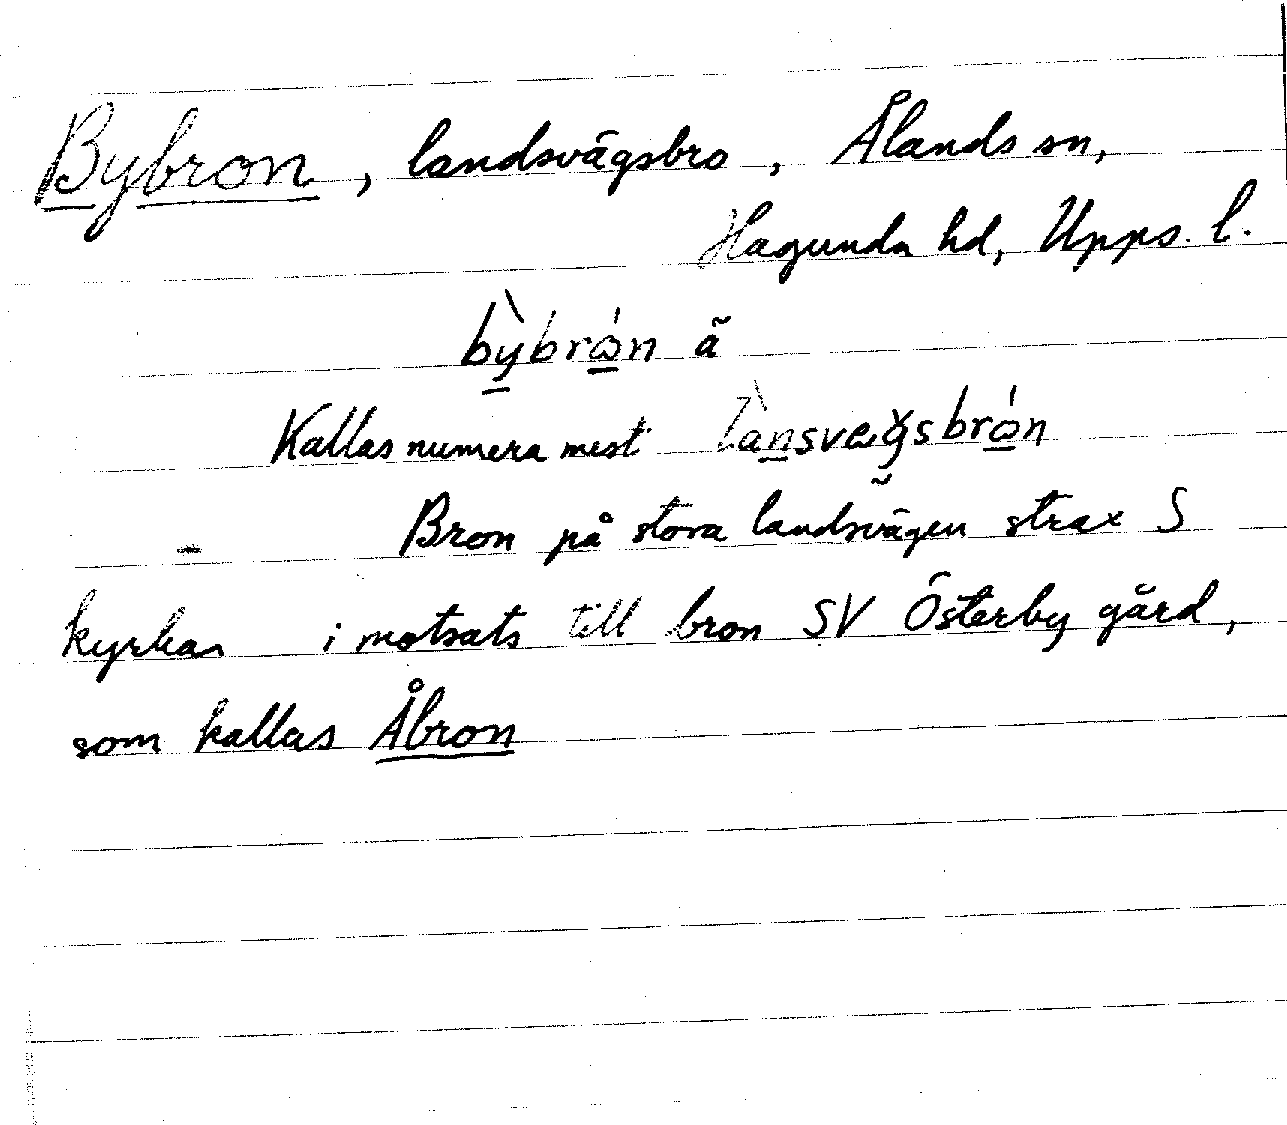 Bybron, landsvägsbro, Ålands sn,
Hagunda hd, Upps. l.
bỳbrón ã
Kallas numera mest lànsvægsbrón
Bron på stora landsvägen strax S
kyrkan i motsats till bron SV Österby gård,
som kallas Åbron